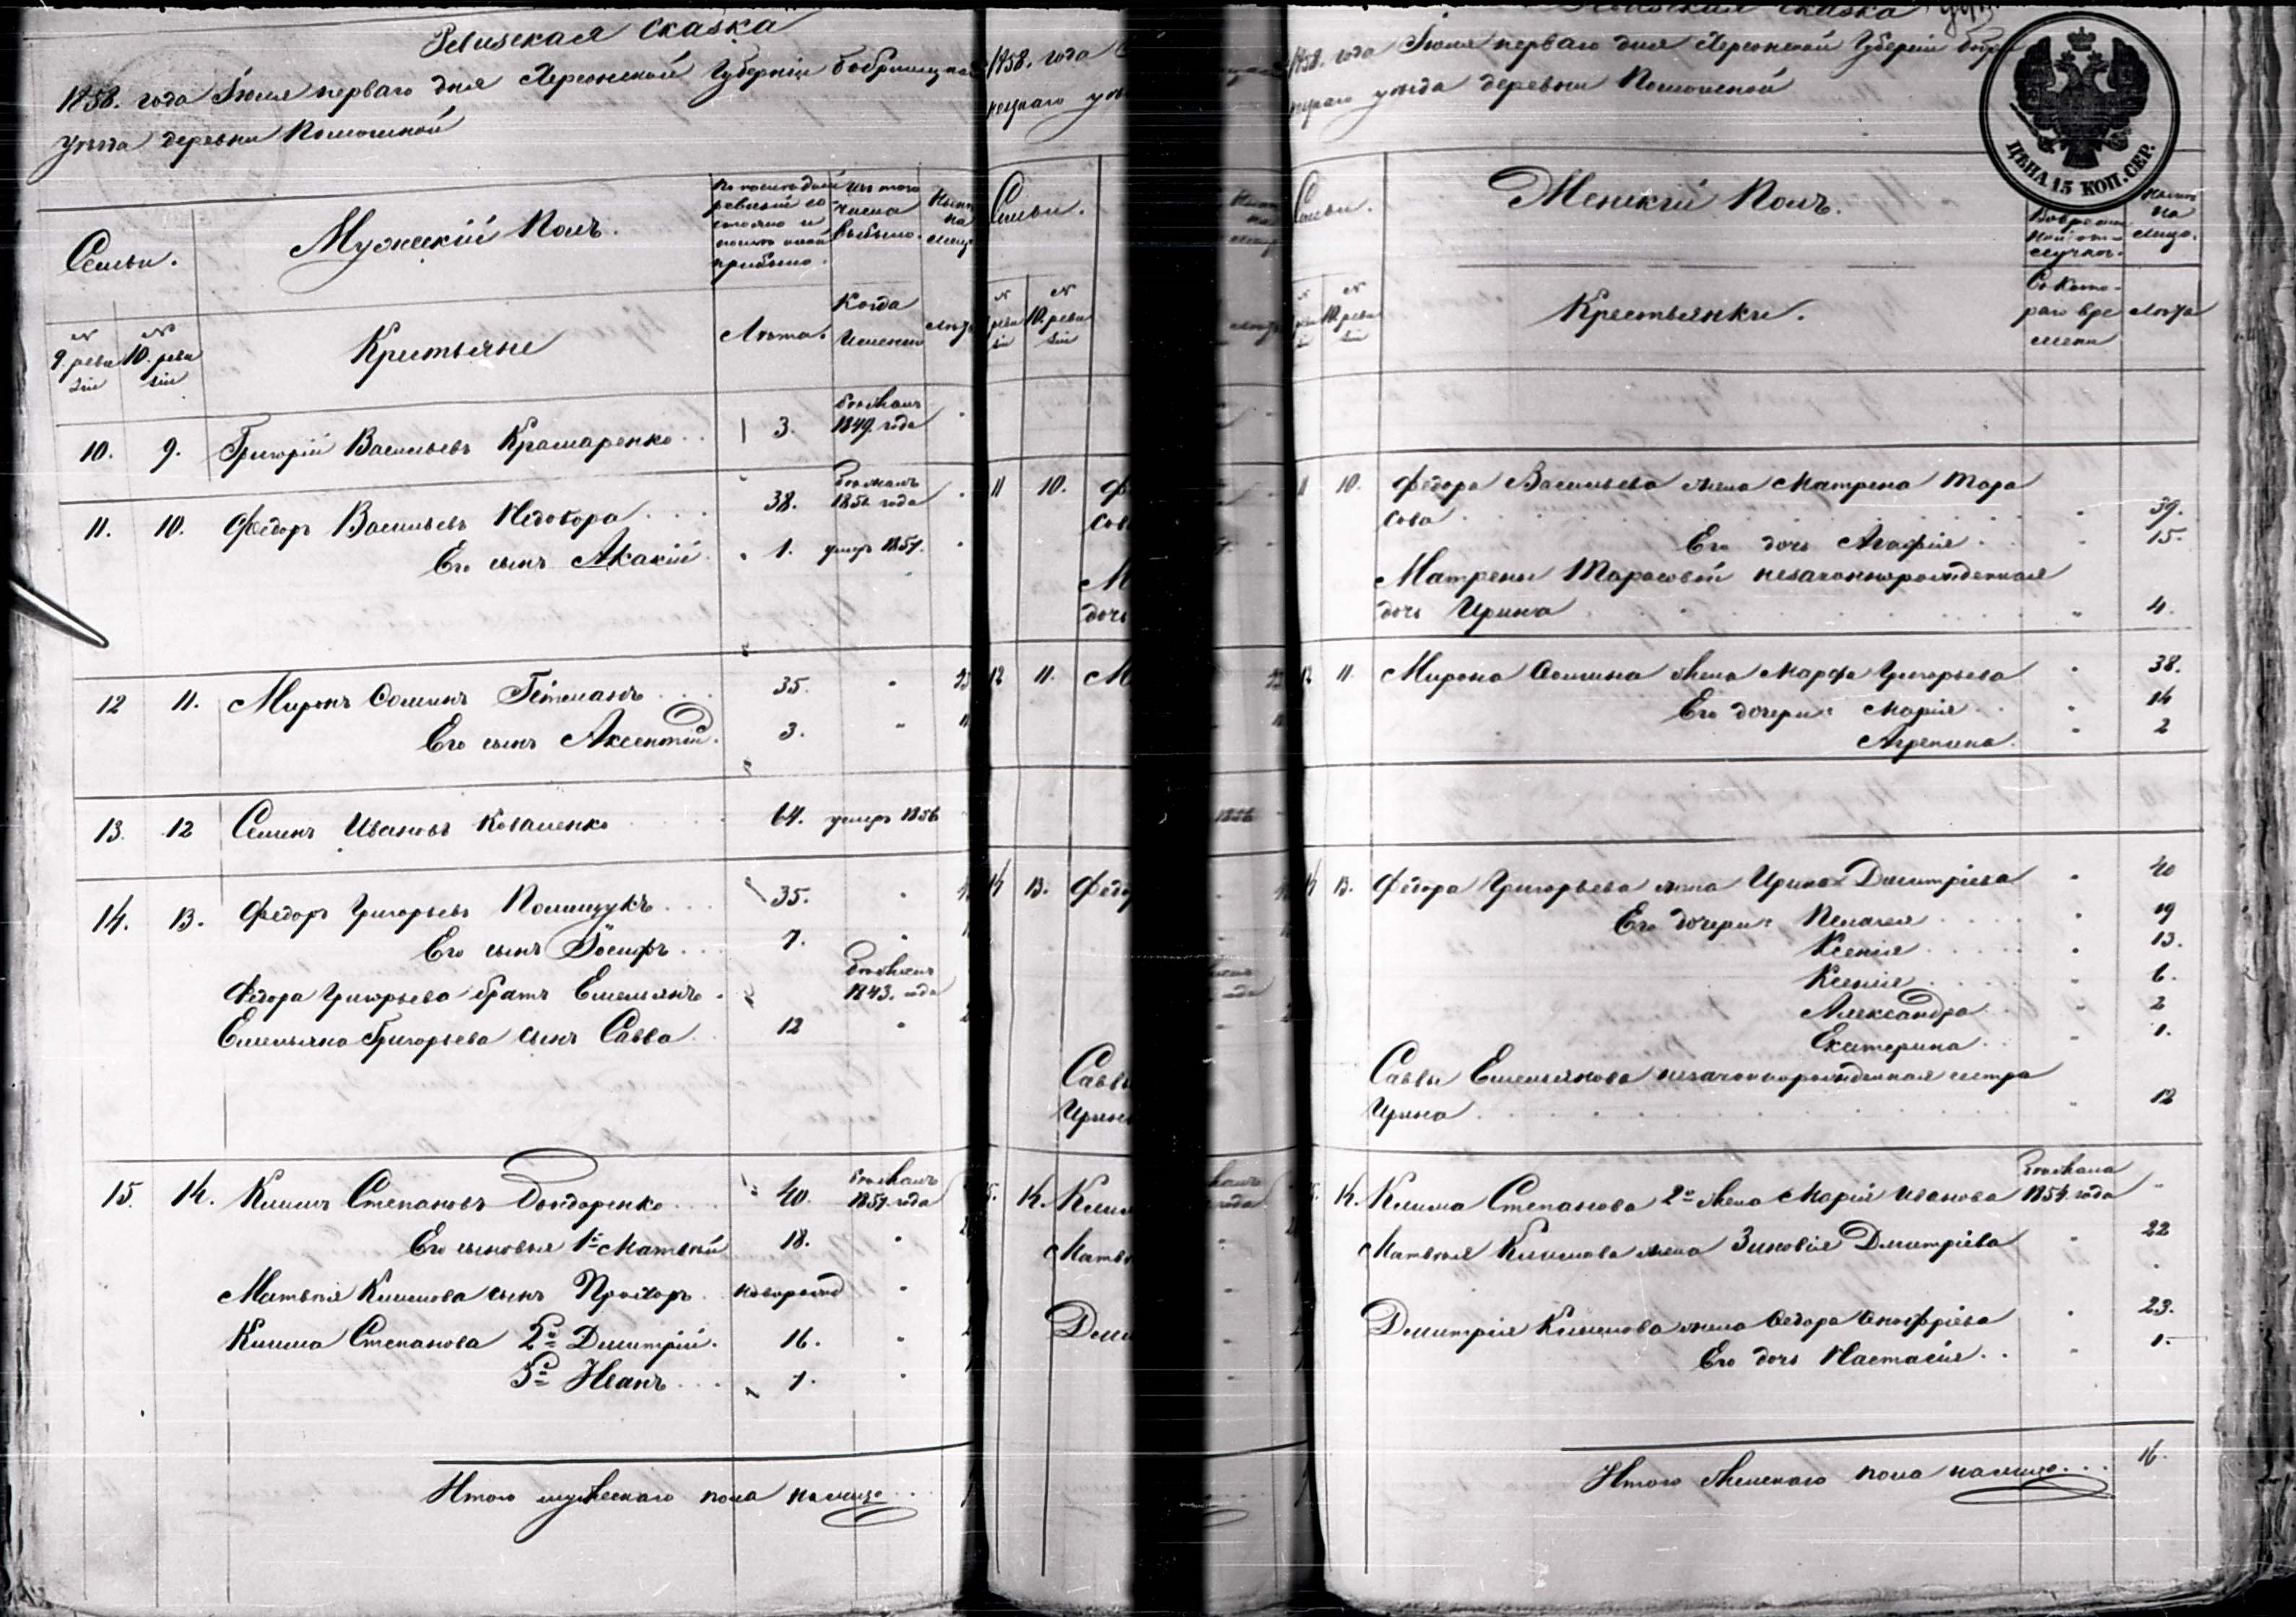 Ревизская сказка
1858. года Іюня перваго дня Херсонской Губерніи Бобринецкаго
уѣзда деревни Помошной
Семьи.
Мужескій Полъ.
По послѣдней
ревизіи со
стояло и
послѣ оной
прибыло.
Изъ того
числа
выбыло.
Нынѣ
на
лицо
№
9. реви
зіи
№
10. реви
зіи
Крестьяне
Лѣта.
Когда
Именно
Лѣта
10. 9. Григорій Васильевъ Крамаренко . . 3. бѣжалъ
1849. года
11. 10. Федоръ Васильевъ Недобора . . . 38. бѣжалъ
1856 года
Его сынъ Акакій . 1. умеръ 1857.
12 11. Миронъ Соминъ Гетманъ . . . 35. "
Его сынъ Аксентій . 3. "
13. 12 Семенъ Ивановъ Коваленко 64. умеръ 1856
14. 13. Федоръ Григорьевъ Полищукъ . . . 35. "
Его сынъ Іосифъ . . . 7. "
Федора Григорьева братъ Емельянъ . бѣжалъ
1843. года
Емельяна Григорьева сынъ Савва . . 12 "
15. 14. Климъ Степановъ Бондаренко . . . 40. бѣжалъ
1857. года
Его сыновья 1й Матвѣй 18. "
Матвѣя Климова сынъ Прохоръ . . новорожд "
Клима Степанова 2й Дмитрій . 16. "
3й Иванъ . . . 1. "
Итого мужескаго пола налицо . . .
1858. года
нецкаго уѣ
Семьи.
№
реви
зіи
№
10. реви
зіи
11 10. Ф
сов
М
доч
12 11. М
14 13. Федо
Саввы
Ирин
14. Клим
Матвѣ
Дми
Ревизская сказка
1858. года Іюня перваго дня Херсонской Губерніи Бобри
нецкаго уѣзда деревни Помошной
ЦѢНА 15 КОП. СЕР.
Семьи.
Женскій Полъ.
Во време
нной от
лучкѣ.
Нынѣ
на
лицо.
№
реви
зіи
№
10. реви
зіи
Крестьянки.
Съ кото-
раго вре
мени
Лѣта
11 10. Федора Васильева жена Матрена Тара
сова . . . . . . . " 39.
Его дочь Агафія . . " 15.
Матрены Тарасовой незаконнорожденная
дочь Ирина . . . . . . " 4.
12 11. Мирона Сомина жена Марфа Григорьева " 38.
Его дочери: Марія . . " 14
Агрепина . " 2
14 13. Федора Григорьева жена Ирина Дмитріева " 40
Его дочери: Пелагея . . . . " 19
Ксенія . . . . . " 13.
Ксенія . . . . . " 6.
Александра . . " 2
Екатерина . . " 1.
Саввы Емельянова незаконнорожденная сестра
Ирина . . . . . . . . " 12
14. Клима Степанова 2я жена Марія Иванова бѣжала
1854. года "
Матвѣя Климова жена Зиновія Дмитріева " 22
Дмитрія Климова жена Федора Онофріева " 23.
Его дочь Настасія . . " 1.
Итого женскаго пола налицо . . . 16.